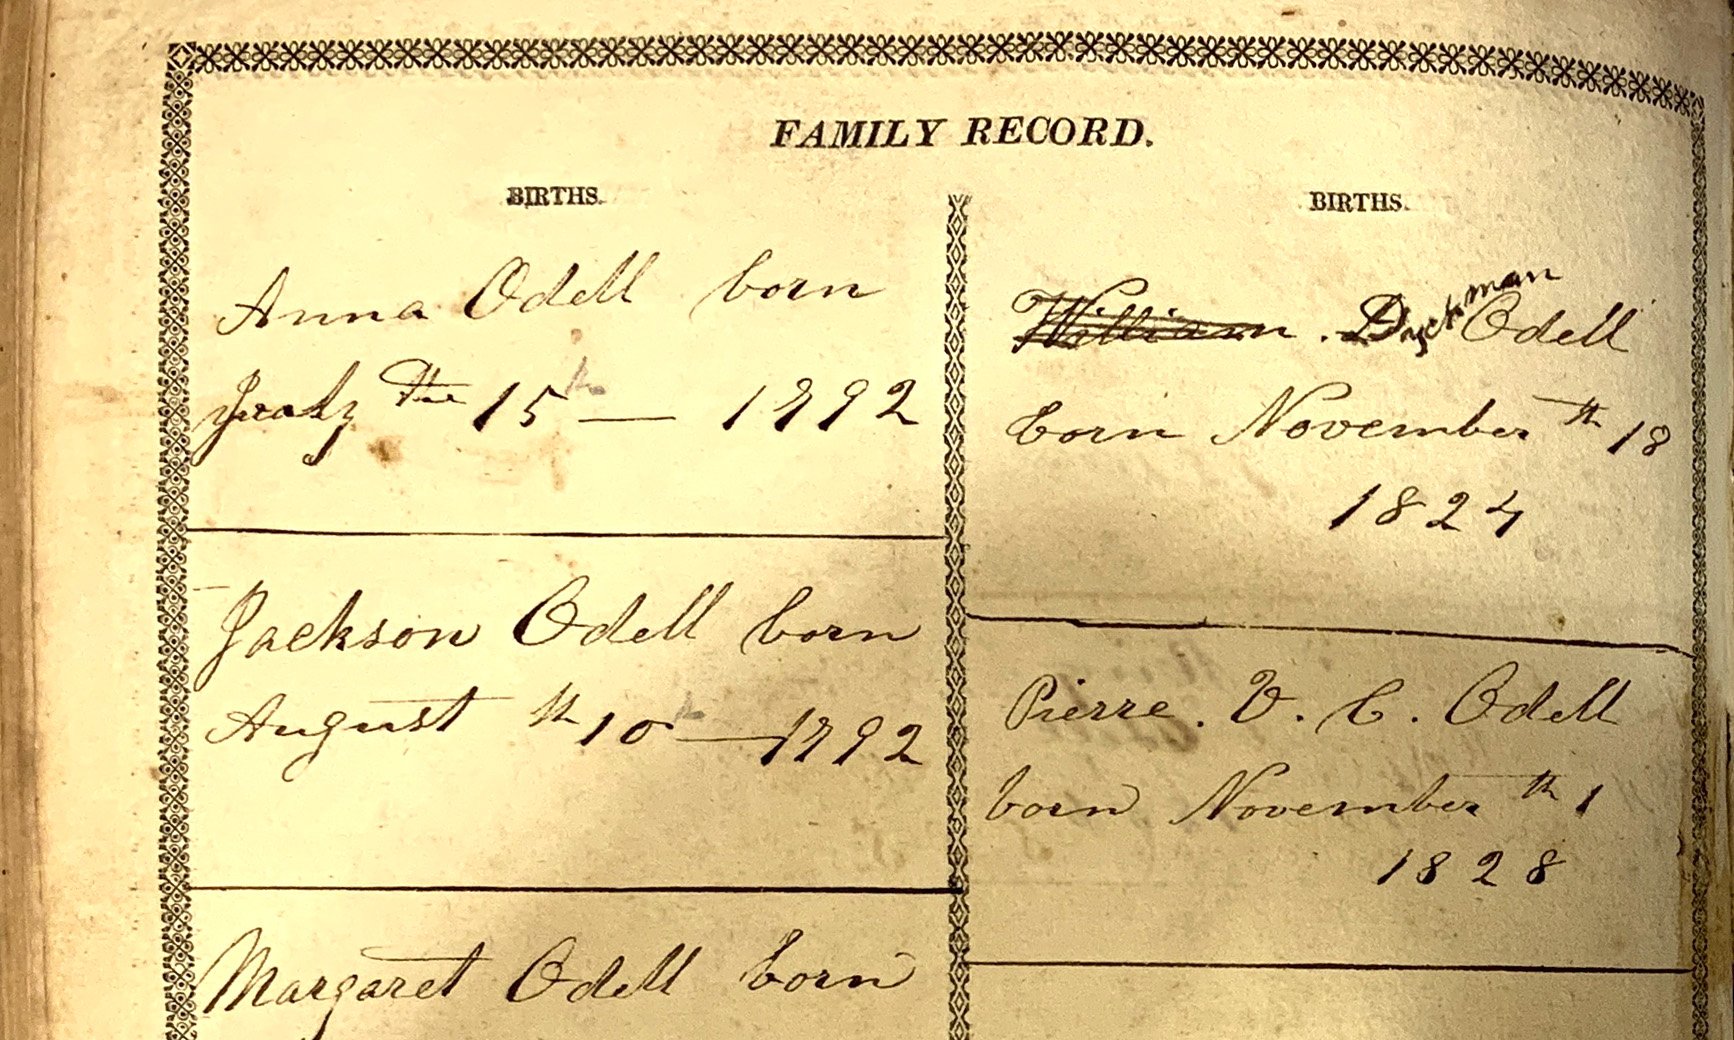 FAMILY RECORD.
BIRTHS.
Anna Odell born
the 15th — 1792
Jackson Odell born
August th 10th — 1792
Margaret Odell born
BIRTHS.
William . Dyckman Odell
born November th 18
1824
Pierre . V. C. Odell
born November th 1
1828